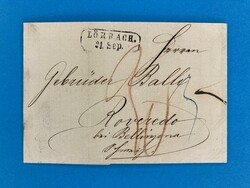 LÖRRACH.
21 Sep.
Herren
Gebrüder Bally
Roveredo
bei Bellinzona
Schweiz